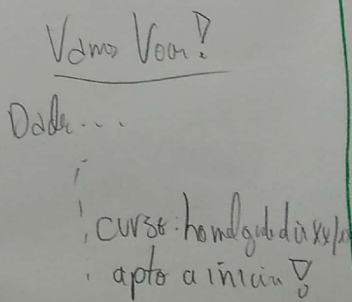 Vamos Voar!
Dado...
curso: homologado dia xx/xx
apto a iniciar!